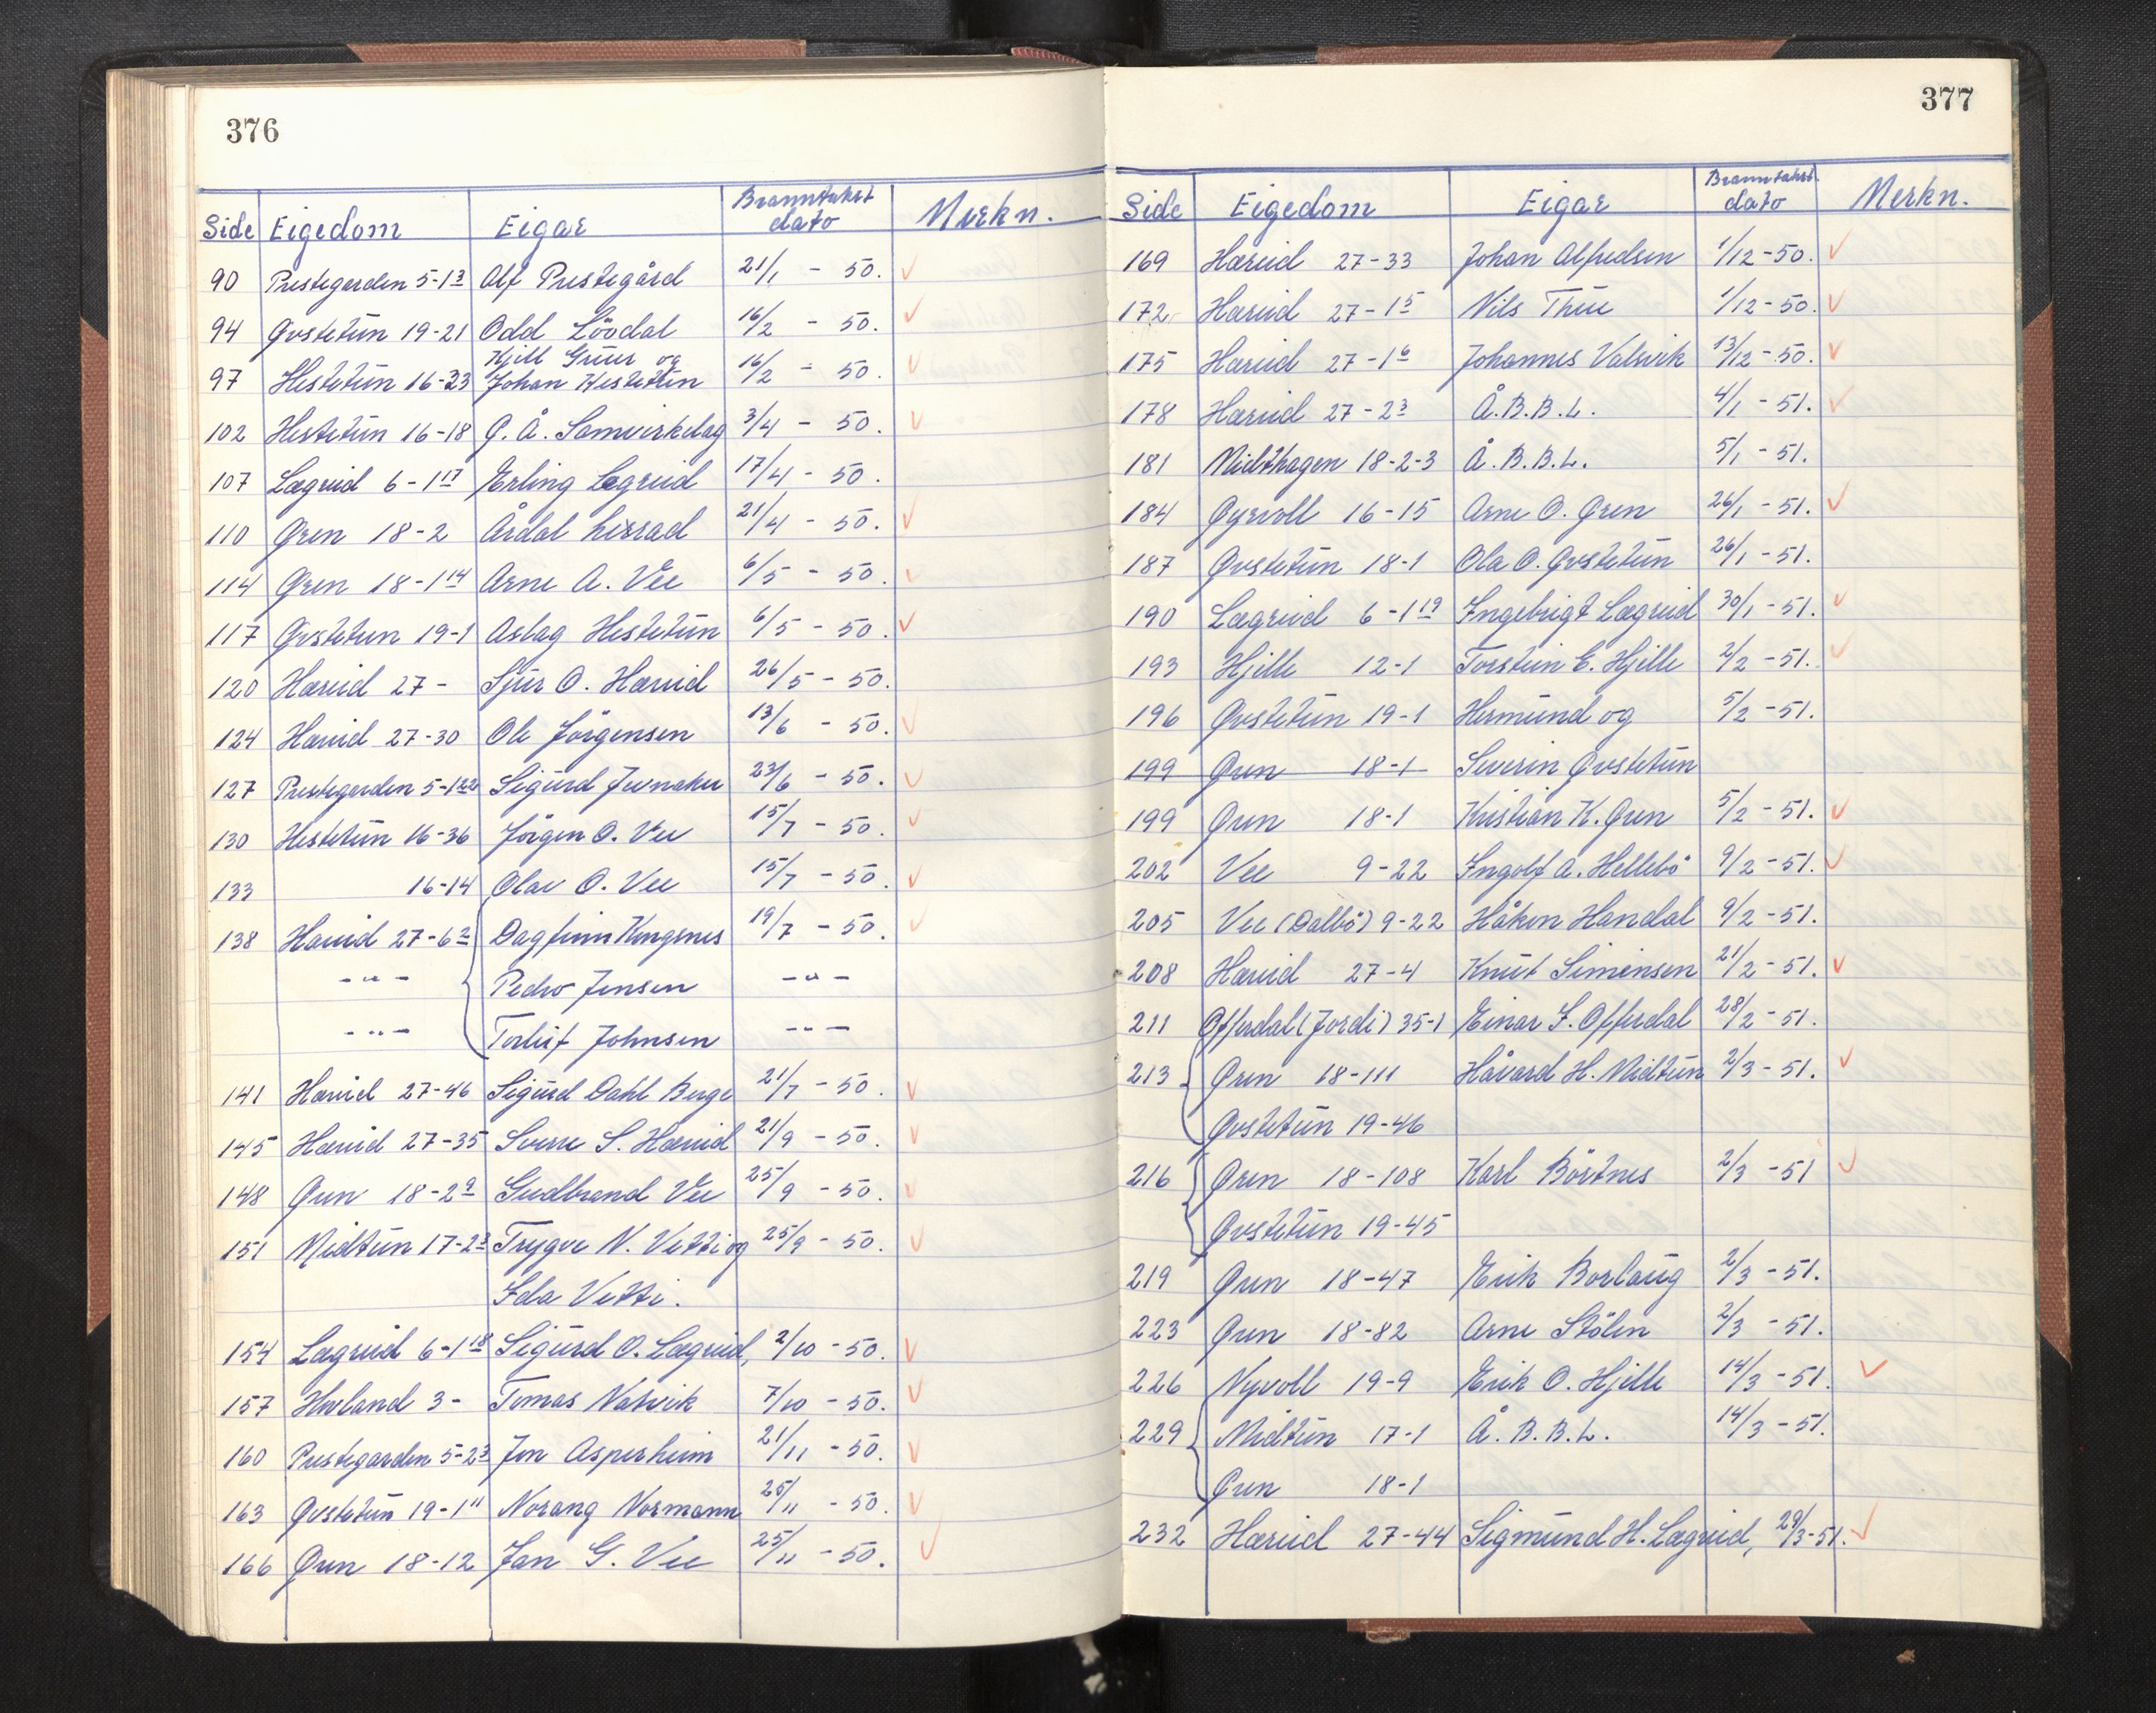 376
Side Eigedom Eigar Branntakst dato Merkn.
90 Prestegarden 5-1³ Alf Prestegård 21/1 - 50. ✓
94 Øvstetun 19-21 Odd Lövdal 16/2 - 50. ✓
Kjell Gruer og
97 Hestetun 16-23 Johan Hestetun 16/2 - 50. ✓
102 Hestetun 16-18 Ø. Å. Samvirkelag 3/4 - 50. ✓
107 Lægreid 6-1¹⁷ Erling Lægreid 17/4 - 50.
110 Øren 18-2 Årdal herrad 21/4 - 50. ✓
114 Øren 18-1¹⁴ Arne A. Vee 6/5 - 50. ✓
117 Øvstetun 19-1 Aslag Hestetun 6/5 - 50. ✓
120 Hæreid 27- Sjur O. Hæreid 26/5 - 50.
124 Hæreid 27-30 Ole Jörgensen 13/6 - 50. ✓
127 Prestegarden 5-1²² Sigurd Jevnaker 23/6 - 50. ✓
130 Hestetun 16-36 Jörgen O. Vee 15/7 - 50. ✓
133 16-14 Olav O. Vee 15/7 - 50. ✓
138 Hæreid 27-6² Dagfinn Kongsnes 19/7 - 50. ✓
-"- Pedro Jensen -"-
-"- Torleif Johnsen -"-
141 Hæreid 27-46 Sigurd Dahl Berge 21/7 - 50. ✓
145 Hæreid 27-35 Sverre S. Hæreid 21/9 - 50. ✓
148 Øren 18-2⁹ Gudbrand Vee 25/9 - 50. ✓
151 Midtun 17-2³ Trygve N. Vetti og 25/9 - 50. ✓
Ida Vetti.
154 Lægreid 6-1¹⁸ Sigurd O. Lægreid, 2/10 - 50. ✓
157 Hovland 3- Tomas Natvik 7/10 - 50. ✓
160 Prestegarden 5-2³ Jon Asperheim 21/11 - 50. ✓
163 Øvstetun 19-1¹¹ Norang Normann 25/11 - 50. ✓
166 Øren 18-12 Jan G. Vee 25/11 - 50. ✓
377
Side Eigedom Eigar Branntakst. dato Merkn.
169 Hæreid 27-33 Johan Alfredsen 1/12 - 50. ✓
172 Hæreid 27-1⁵ Nils Thue 1/12 - 50. ✓
175 Hæreid 27-1⁶ Johannes Valsvik 13/12 - 50. ✓
178 Hæreid 27-2³ Å.B.B.L. 4/1 - 51. ✓
181 Midthagen 18-2-3 Å.B.B.L. 5/1 - 51.
184 Øyrvoll 16-15 Arne O. Øren 26/1 - 51. ✓
187 Øvstetun 18-1 Ola O. Øvstetun 26/1 - 51.
190 Lægreid 6-1¹⁹ Ingebrigt Lægreid 30/1 - 51. ✓
193 Hjelle 12-1 Torstein E. Hjelle 2/2 - 51. ✓
196 Øvstetun 19-1 Hermund og 5/2 - 51.
199 Øren 18-1 Severin Øvstetun
199 Øren 18-1 Kristian K. Øren 5/2 - 51. ✓
202 Vee 9-22 Ingolf A. Hellebö 9/2 - 51. ✓
205 Vee (Dalbö) 9-22 Håkon Handal 9/2 - 51.
208 Hæreid 27-4 Knut Simensen 21/2 - 51. ✓
211 Offerdal (Jordi) 35-1 Einar I. Offerdal 28/2 - 51.
213 Øren 18-111 Håvard H. Midtun 2/3 - 51. ✓
Øvstetun 19-46
216 Øren 18-108 Karl Börtnes 2/3 - 51 ✓
Øvstetun 19-45
219 Øren 18-47 Erik Borlaug 2/3 - 51.
223 Øren 18-82 Arne Stölen 2/3 - 51.
226 Nyvoll 19-9 Erik O. Hjelle 14/3 - 51. ✓
229 Midtun 17-1 Å.B.B.L. 14/3 - 51.
Øren 18-1
232 Hæreid 27-44 Sigmund H. Lægreid, 29/3 - 51. ✓